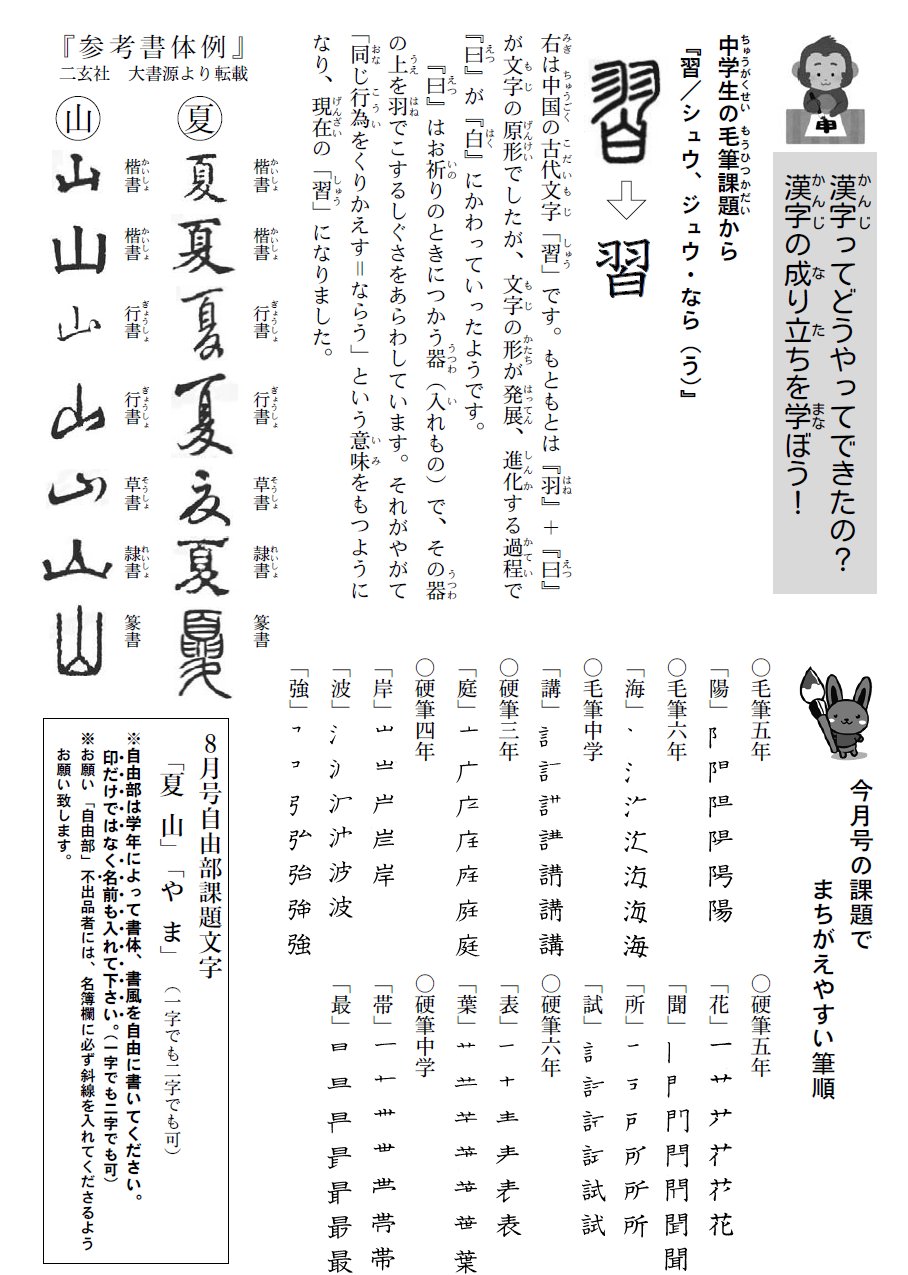 漢字ってどうやってできたの?
漢字の成り立ちを学ぼう!
中学生の毛筆課題から
『習/シュウ、ジュウ・なら(う)』
習⇨習
右は中国の古代文字「習」です。もともとは『羽』+『曰』
が文字の原形でしたが、文字の形が発展、進化する過程で
『曰』が『白』にかわっていったようです。
『曰』はお祈りのときにつかう器(入れもの)で、その器
の上を羽でこするしぐさをあらわしています。それがやがて
「同じ行為をくりかえす=ならう」という意味をもつように
なり、現在の「習」になりました。
『参考書体例』
二玄社 大書源より転載
夏
楷書
楷書
行書
行書
草書
隷書
篆書
山
楷書
楷書
行書
行書
草書
隷書
篆書
今月号の課題で
まちがえやすい筆順
○毛筆五年
「陽」
○毛筆六年
「海」
○毛筆中学
「講」
○硬筆三年
「庭」
○硬筆四年
「岸」
「波」
「強」
○硬筆五年
「花」
「聞」
「所」
「試」
○硬筆六年
「表」
「葉」
○硬筆中学
「帯」
「最」
8月号自由部課題文字
「夏 山」「や ま」(一字でも二字でも可)
※自由部は学年によって書体、書風を自由に書いてください。
印だけではなく名前も入れて下さい。(一字でも二字でも可)
※お願い「自由部」不出品者には、名簿欄に必ず斜線を入れてくださるよう
お願い致します。